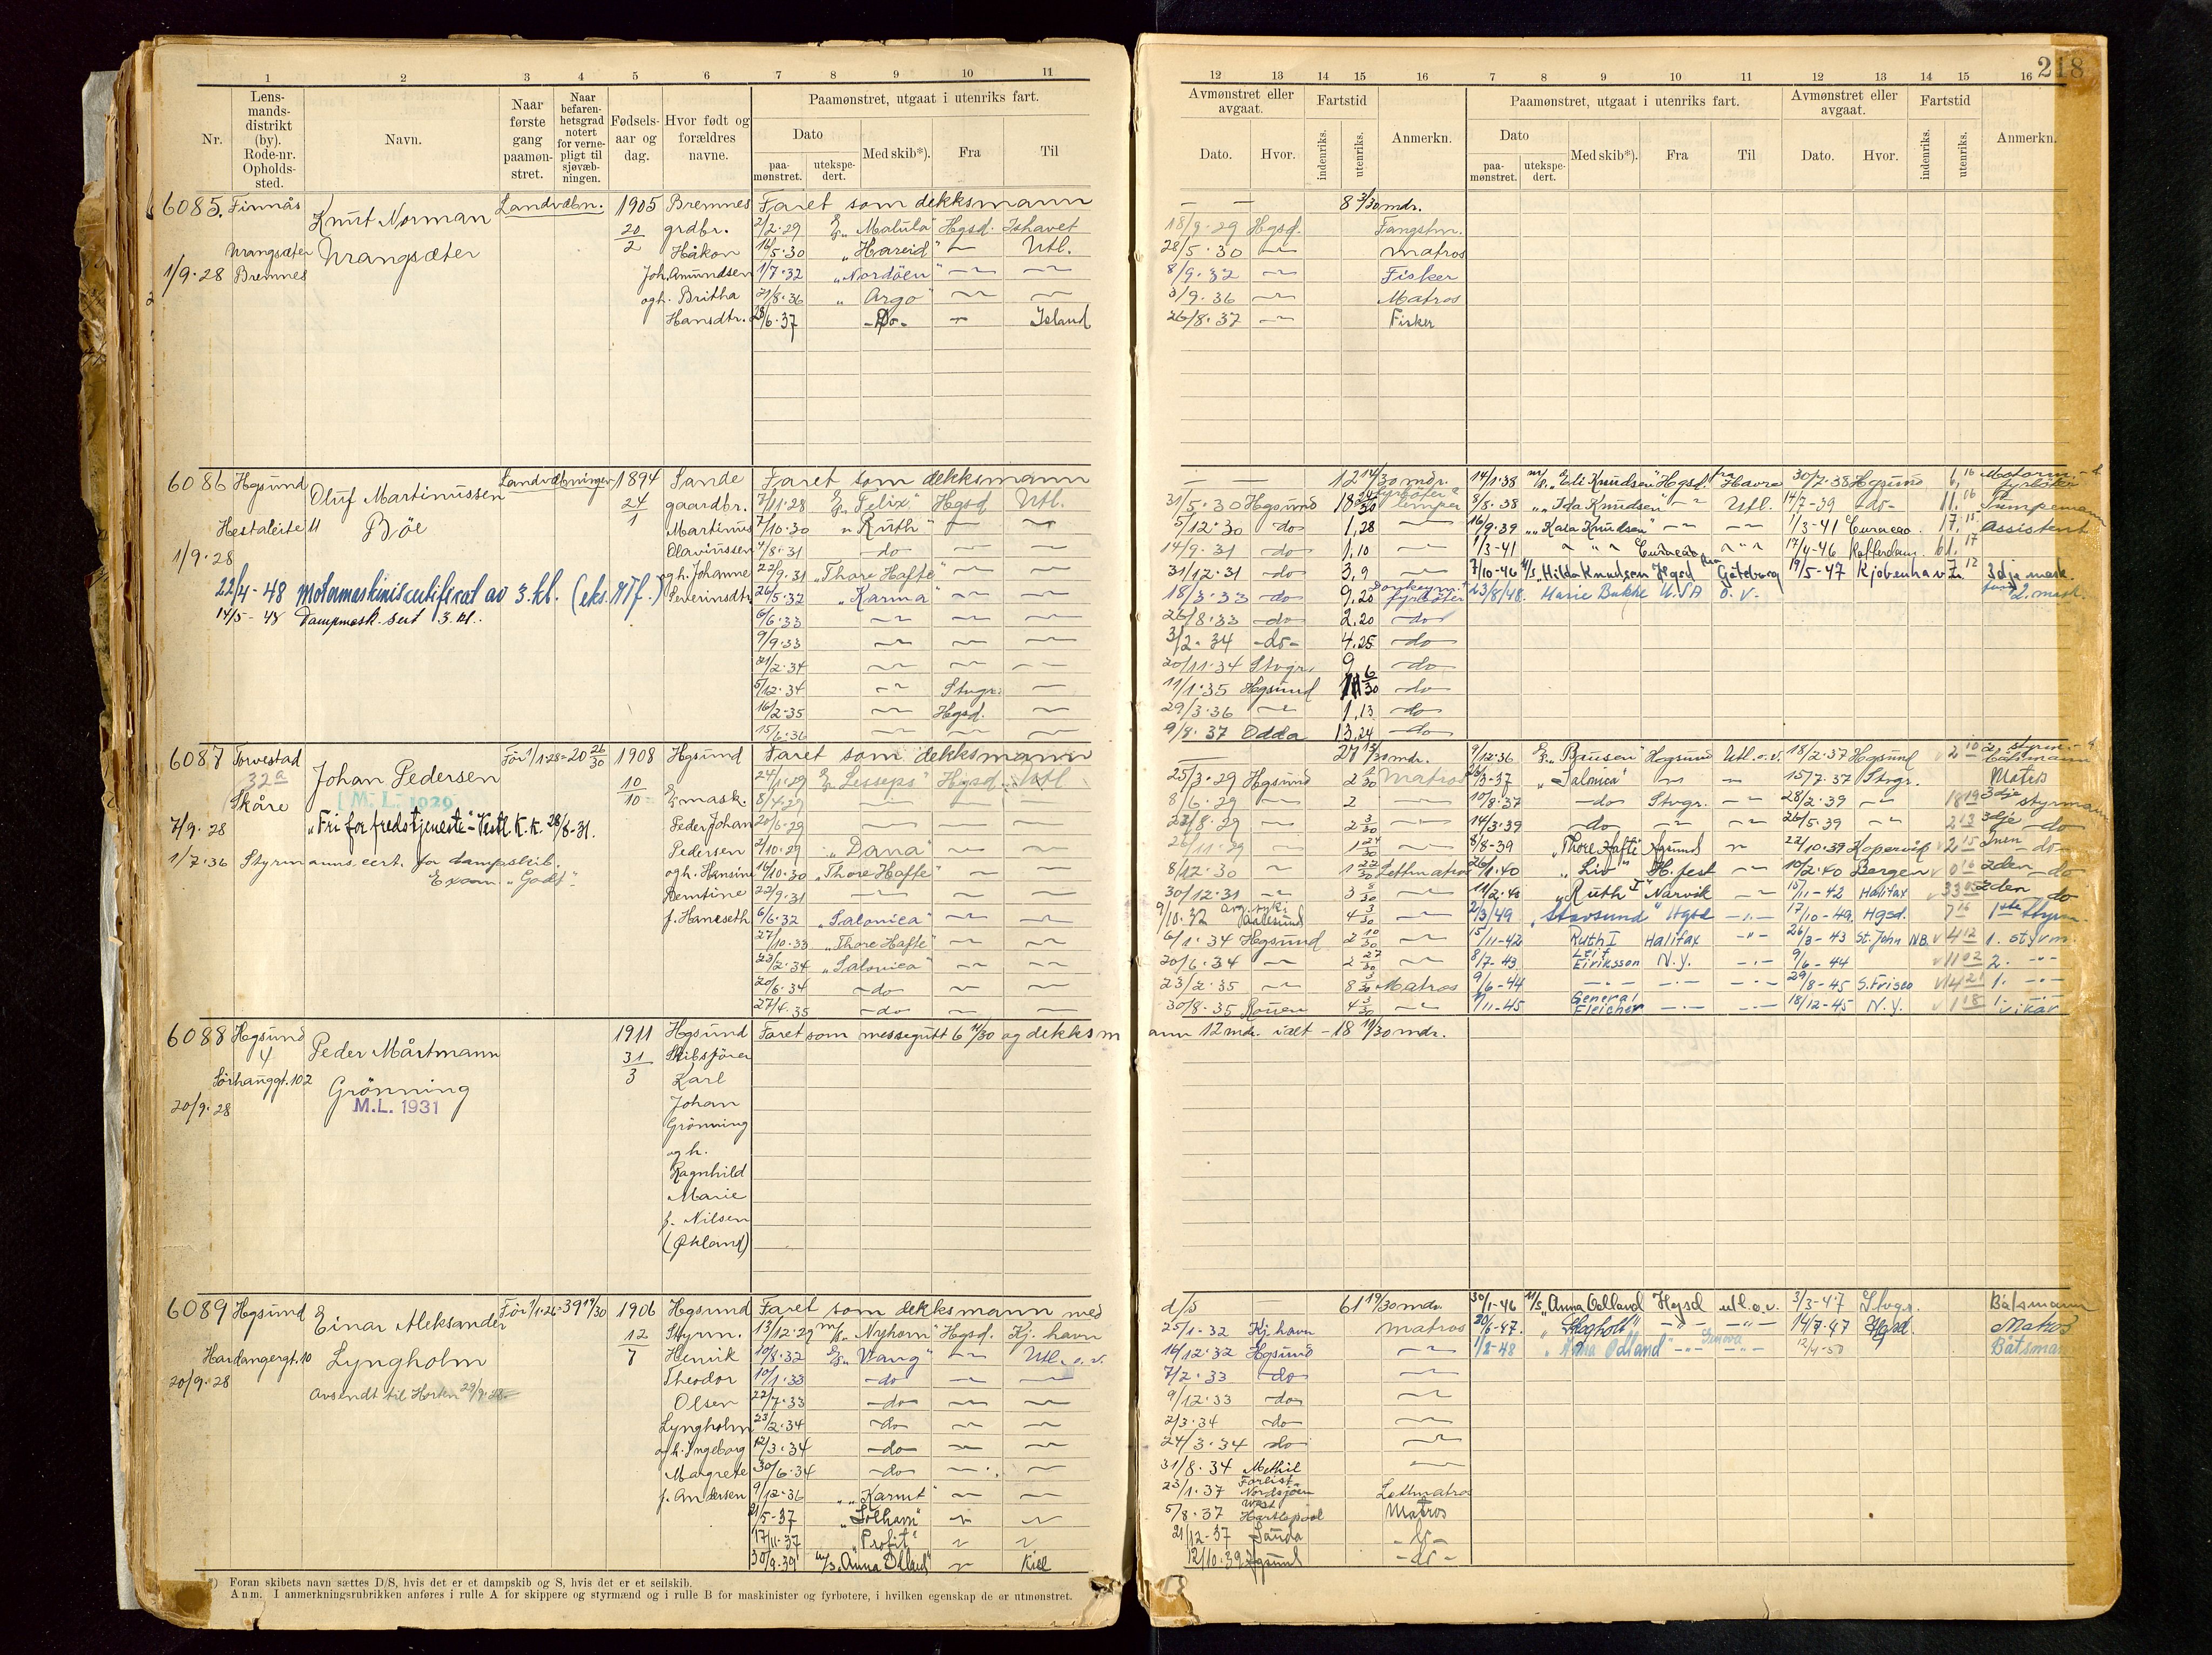 1 2 3 4 5 6 7 8 9 10 11
Nr.
Lens-
mands-
distrikt
(by).
Rode-nr.
Opholds-
sted.
Navn.
Naar
første
gang
paamøn-
stret.
Naar
befaren-
hetsgrad
notert
for verne-
pligt til
sjøvæb-
ningen.
Fødsels-
aar og
dag.
Hvor født og
forældres
navne.
Paamønstret, utgaat i utenriks fart.
Dato
paa-
mønstret.
utekspe-
dert.
Med skib*).
Fra
Til
6085. Finnås Knut Norman Landvæbn. 1905 Bremnes Faret som dekksmann
20/2 grdbr. 2/2.29 "Matula" Hgsd. Ishavet
Vrangsæter Vrangsæter Håkon 16/5.30 "Hareid" Utl.
1/9.28 Bremnes Joh. Amundsen 1/7.32 "Nordöen"
ogh. Britha 21/8.36 "Argo"
Hansdtr. 28/6.37 -Do- Island
6086 Hgsund Oluf Martinussen Landvæbningen 1894 Sande Faret som dekksmann
24/1 gaardbr. 7/11.28 "Felix" Hgsd Utl.
Hestaleite 11 Böe Martinus 7/10.30 "Ruth"
Olavinssen 4/8.31 do
1/9.28 ogh. Johanne 22/9.31 "Thore Hafte"
22/4-48 Motormaskinistcertifikat av 3. kl. (eks. NTf.) Severinsdtr 26/5.32 "Karma"
14/5-48 Dampmask. sert 3. kl. 6/6.33
9/9.33
21/2.34
5/12.34 Stvgr.
16/2.35 Hgsd.
15/6.36
6087 Torvestad Johan Pedersen Før 1/1.28=20 26/30 1908 Hgsund Faret som dekksmann
32a 10/10 24/1.29 "Lesseps" Hgsd Utl
Skåre M. L. 1929 mask. 8/4.29
7/9.28 "Fri for fredstjeneste"-Vestl. K.K. 28/8-31. Peder Johan 20/6.29
1/7.36 Styrmanns cert. for dampskib. Pedersen 2/10.29 "Dana"
Exam. "Godt". ogh. Hansine 16/10.30 "Thore Hafte"
Berntine 22/9.31
f. Hanseth 6/6.32 "Salonica"
27/10.33 "Thore Hafte"
23/2.34 "Salonica"
20/6.34 do
27/4.35 do
6088 Hgsund Peder Mårtmann 1911 Hgsund Faret som messegutt 6 11/30 og dekksm
4 31/3 Skibsfører
Sörhauggt. 102 Grönning Karl
20/9.28 M.L. 1931 Johan
Grönning
og h.
Ragnhild
Marie
f. Nilsen
(Økland)
6089 Hgsund Einar Aleksander Før 1/1.26=39 19/30 1906 Hgsund Faret som dekksmann med
12/7 Styrm. 13/12.29 "Nyhorn" Hgsd. Kj. havn
Hardangergt. 10 Lyngholm Henrik 10/8.32 "Vang" Utl. o. v.
20/9.28 Theodor 10/1.33 do
Avsendt til Horten Olsen 22/7.33 do
Lyngholm 23/2.34 do
og h. Ingeborg 12/3.34 do
Margrete 30/6.34 do
f. Andersen 9/12.36 "Karmt"
21/5-37 "Solhavn"
17/11-37 "Profit"
30/9.39 m/s "Anna Odland" Kiel
*) Foran skibets navn sættes D/S, hvis det er et dampskib og S, hvis det er et seilskib.
Anm. I anmerkningsrubrikken anføres i rulle A for skippere og styrmænd og i rulle B for maskinister og fyrbøtere, i hvilken egenskap de er utmønstret.
218
12 13 14 15 16 7 8 9 10 11 12 13 14 15 16
Avmønstret eller
avgaat.
Dato. Hvor.
Fartstid
indenriks. utenriks.
Anmerkn.
Paamønstret, utgaat i utenriks fart.
Dato
paa-
mønstret.
utekspe-
dert.
Med skib*).
Fra
Til
Avmønstret eller
avgaat.
Dato. Hvor.
Fartstid
indenriks. utenriks.
Anmerkn.
8 3/30 mdr.
18/9.29 Hgsd. Fangstm.
28/5.30 matros
8/9.32 Fisker
3/9.36 Matros
26/8.37 Fisker
12 14/30 mdr. 14/1.38 "Eli Knudsen" Hgsd. fra Havre 30/7.38 Hgsund
31/5.30 Hgsund 18 lemper 8/8.38 "Ida Knudsen" Utl. 14/7-39 do- 11. 16 Pumpemann
5/12.30 do 1,28 16/9.39 "Kaia Knudsen" 1/3-41 Curacao. 17, 15 Assistent
14/9.31 do 1,10 1/3-41 Curacao 17/4-46 Rotterdam. 61. 17
31/12.31 do 3,9 7/10-46 M/S. Hilda Knudsen Hgsd Göteborg 19/5-47 Kjöbenhavn 7. 12 3dje mask.
18/3.33 do 9,20 fyrböter 23/8/48. Marie Bakke U.S.A o. v. 2. mask.
26/8.33 do 2,20 do
3/2-34 -do- 4,25 do
20/11.34 Stvgr. 9 do
11/1.35 Hgsund 6/30 do
29/3.36 1,13 do
9/8.37 Odda 13,24 do
27 13/30 mdr. 9/12.36 "Bausen" Hogsund Utl. o. v. 18/2.37 Hgsund 2 10 2. styrm.
Båtsmann
25/3.29 Hgsund 2 Matros 16/3-37 "Salonica" 15/7.37 Stvgr. Matros
8/6.29 2 10/8.37 do Stvgr. 28/2.39 18 19 3dje styrmann
23/8.29 2 3/30 14/3.39 do 26/5.39 2 13 3dje do
26/11.29 1 24/30 8/8-39 "Thore Hafte" Hgsund 22/10.39 Kopervik 2 15 2nen do
8/12.30 1 22/30 Lettmatros 26/1.40 "Liv" H.fest 10/2.40 Bergen 0 16 2den do
30/12.31 3 8/30 11/2.40 "Ruth I" Narvik 15/11-42 Halifax 33 05 2den do
9/10.32 avg. syk. Aalesund 4 3/30 2/3/49 "Stavsund" Hgsd 17/10-49. Hgsd. 7 16 1ste Styrm.
6/1.34 Hgsund 2 10/30 15/11-42 Ruth I Halifax 26/3-43 St. John N.B. 4 12 1. styrm.
20/6.34 2 27/30 8/7-43 Leif Eiriksson N.Y. 9/6-44 11 02 2.
23/2.35 8 3/30 Matros 9/6-44 29/8-45 S. Frisco 14 21 1.
30/8.35 Rouen 4 3/30 1/11-45 General Fleicher 18/12-45 N.Y. 1 18 1.
vikar
ann 12 mdr. ialt - 18 11/30 mdr.
d/s 61 19/30 mdr. 30/1-46 M/S "Anna Odland" Hgsd utl. o. v. 3/3-47 Stvgr. Båtsmann
25/1-32 Kj. havn Matros 20/6-47. "Skogholt" 14/7-47 Hgsd. Matros
16/12.32 Hgsund 1/2-48 "Anna Odland" Genova 12/4-50 Båtsma
7/2.33 do
9/12.33 do
2/3.34 do
24/3.34 do
31/8.34 Methil
23/1.37 Forlist Nordsjöen Lettmatros
5/8.37 West Hartlepool Matros
21/12-37 Sauda do
12/10.39 Hgsund -do-